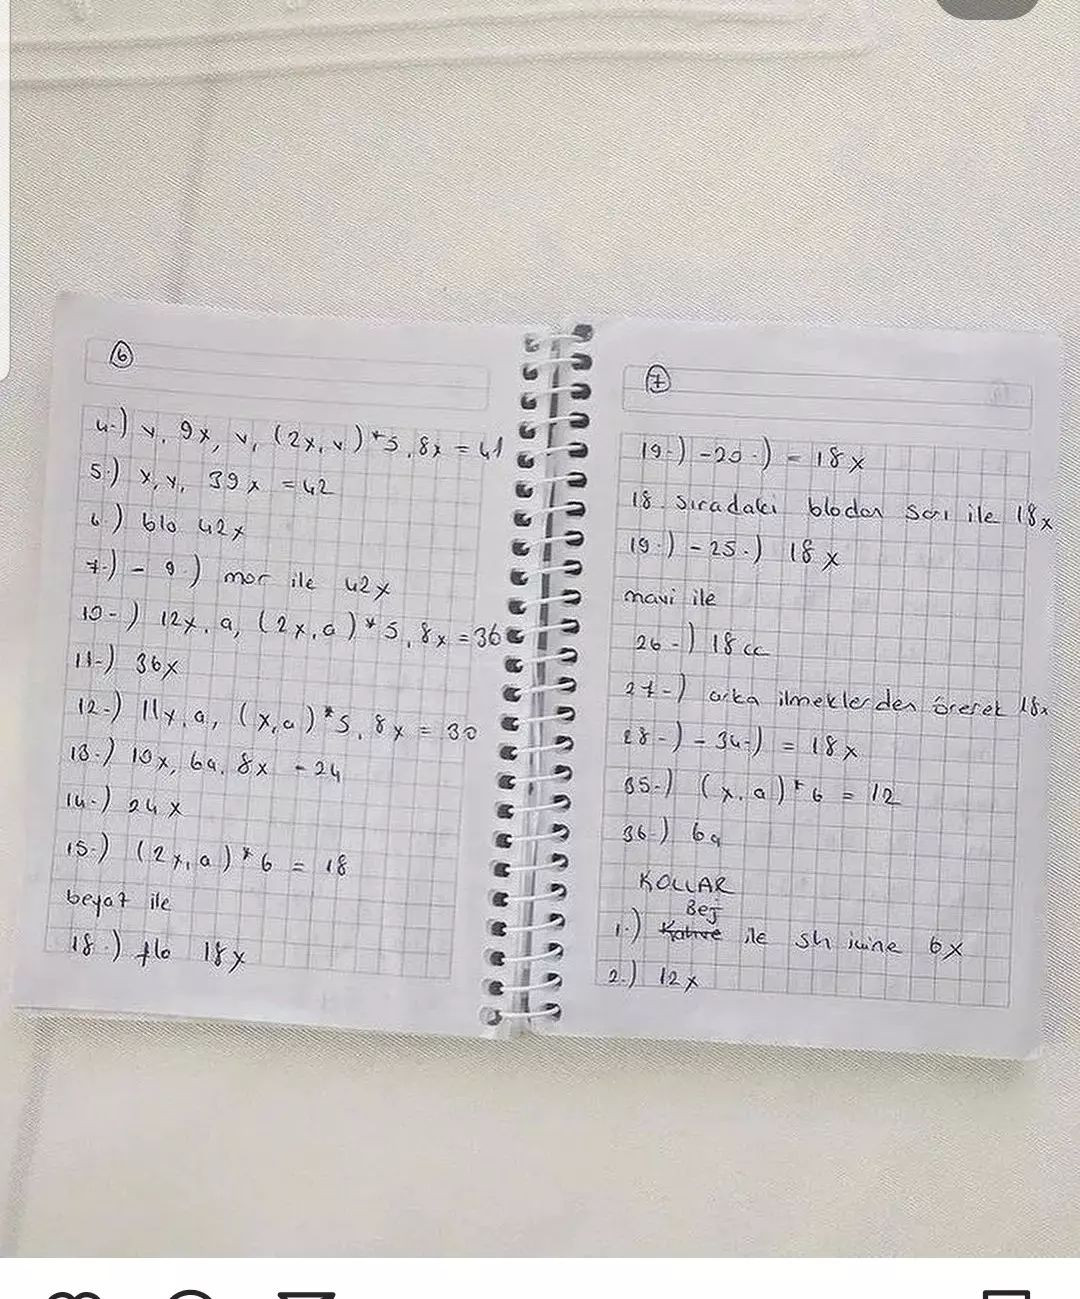 6
4-) v, 9x, v, (2x, v)*5, 8x = 41
5-) x, v, 39x = 42
6-) blo 42x
7-) - 9-) mor ile 42x
10-) 12x, a, (2x, a)*5, 8x = 36
11-) 36x
12-) 11x, a, (x, a)*5, 8x = 30
13-) 10x, 6a, 8x - 24
14-) 24x
15-) (2x, a)*6 = 18
beyaz ile
18-) flo 18x
7
19-) - 20-) = 18x
18. sıradaki blodan sarı ile 18x
19-) - 25-) 18x
mavi ile
26-) 18cc
27-) arka ilmeklerden örerek 18x
28-) - 34-) = 18x
35-) (x, a)*6 = 12
36-) 6a
KOLLAR
Bej
1-) Kahve ile sh içine 6x
2-) 12x